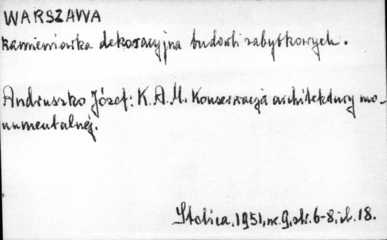 WARSZAWA
kamieniarka dekoracyjna budowli zabytkowych.
Andruszko Józef: K.A.M. Konserwacja architektury mo-
numentalnej.
Stolica, 1951, nr 9, str. 6-8, il. 18.